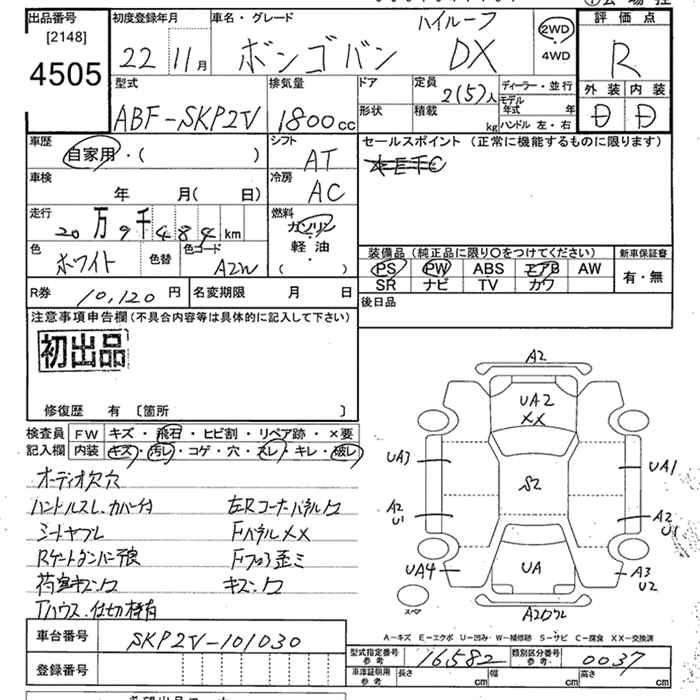 出品番号
[2148]
4505
初度登録年月
22 11月
車名・グレード
ボンゴバン
ハイルーフ
DX
2WD
4WD
評価点
R
外装 内装
D D
型式
ABF-SKP2V
排気量
1800cc
ドア
形状
定員
2(5)人
積載
kg
ディーラー・並行
モデル年式 年
ハンドル 左・右
車歴
自家用・( )
車検
年 月( 日)
シフト
AT
冷房
AC
セールスポイント (正常に機能するものに限ります)
走行
20万9千484km
燃料
ガソリン
軽・油
( )
色
ホワイト
色替
色コード
A2W
装備品 (純正品に限り○をつけてください)
PS PW ABS エアB AW
SR ナビ TV カワ
新車保証書
有・無
R券
10,120円
名変期限 月 日
後日品
注意事項申告欄(不具合内容等は具体的に記入して下さい)
初出品
修復歴 有 〔箇所 〕
検査員
記入欄
FW キズ・飛石・ヒビ割・リペア跡・×要
内装 キズ・汚レ・コゲ・穴・スレ・キレ・破レ
オーディオ欠穴
ハンドルスレ.カバー付
シートヤブレ
荷室キズ凹
左Rコーナーパネル凹
FパネルXX
Fフロア歪ミ
キズ凹
A2
UA2
XX
UA3
UA1
S2
A2
U1
A2
U1
UA4
UA
A3
U2
スペア
A-キズ E-エクボ U-凹み W-補修跡 S-サビ C-腐食 XX-交換済
車台番号
SKP2V-101030
登録番号
型式指定番号
参考
16582
類別区分番号
参考
0037
車津証明用
参考
長さ cm
幅 cm
高さ cm